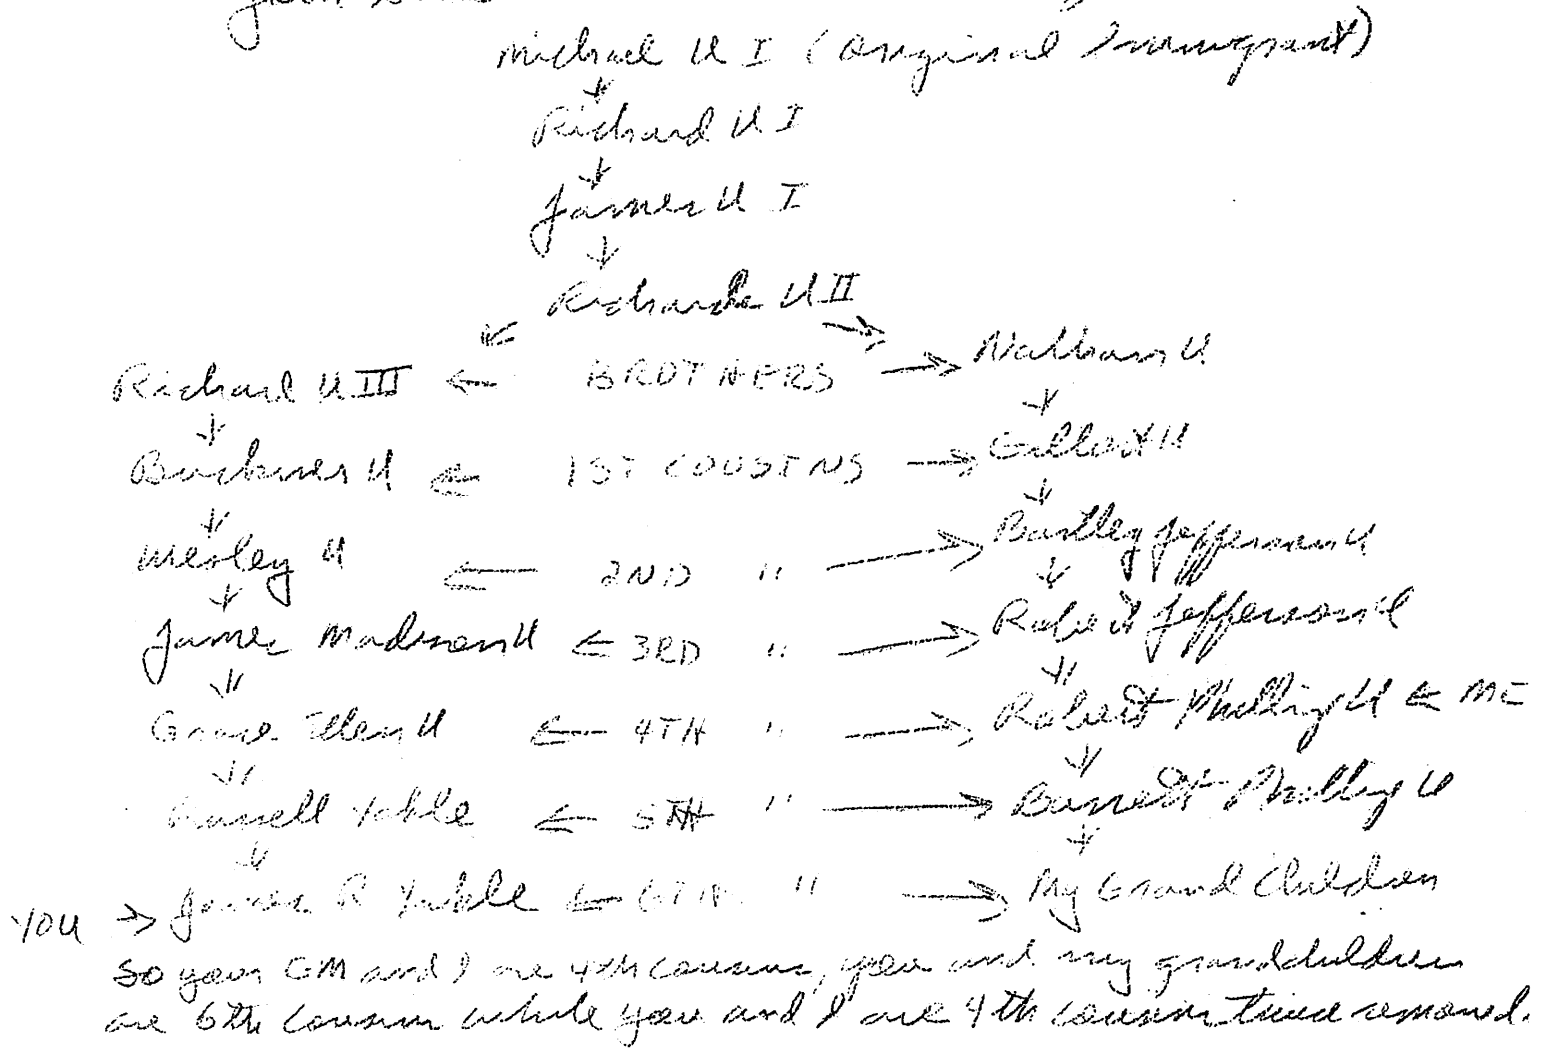 Michael U I (Original Immigrant)
Richard U I
James U I
Richard U II
Richard U III ← BROTHERS → Nathan U
Buckner U ← 1ST COUSINS → Gilbert U
Wesley U ← 2ND " → Bartley Jefferson U
James Madison U ← 3RD " → Robert Jefferson U
Grace Ellen U ← 4TH " → Robert Phillip U ← ME
Russell Yukle ← 5TH " → Barrett Phillip U
YOU → James R Yukle ← 6TH " → My Grand Children
So your GM and I are 4th cousins, you and my grandchildren
are 6th cousin while you and I are 4th cousin twice removed.